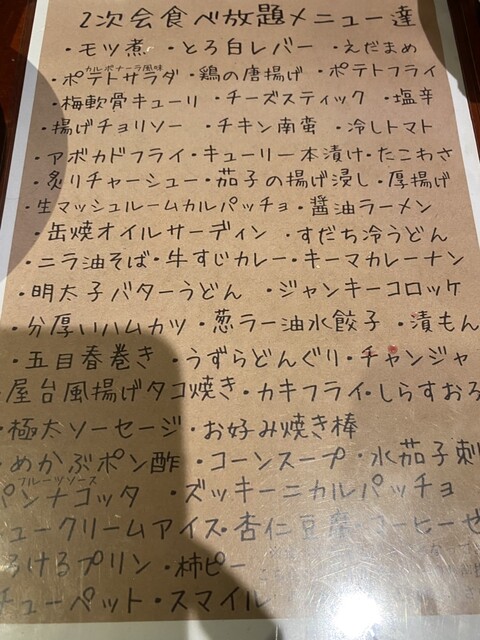 2次会食べ放題メニュー達
・モツ煮 ・とろ白レバー ・えだまめ
カルボナーラ風味
・ポテトサラダ ・鶏の唐揚げ ・ポテトフライ
・梅軟骨キューリ ・チーズスティック ・塩辛
・揚げチョリソー ・チキン南蛮 ・冷しトマト
・アボカドフライ・キューリ一本漬け・たこわさ
・炙りチャーシュー・茄子の揚げ浸し・厚揚げ
・生マッシュルームカルパッチョ・醤油ラーメン
・缶焼オイルサーディン ・すだち冷うどん
・ニラ油そば・牛すじカレー・キーマカレーナン
・明太子バターうどん ・ジャンキーコロッケ
・分厚いハムカツ・葱ラー油水餃子・漬もん
・五目春巻き・うずらどんぐり・チャンジャ
屋台風揚げタコ焼き・カキフライ・しらすおろ
・極太ソーセージ・お好み焼き棒
・めかぶポン酢 ・コーンスープ・水茄子刺
フルーツソース
パンナコッタ ・ズッキーニカルパッチョ
ュークリームアイス・杏仁豆腐・コーヒーゼ
ろけるプリン・柿ピー
チューペット・スマイル